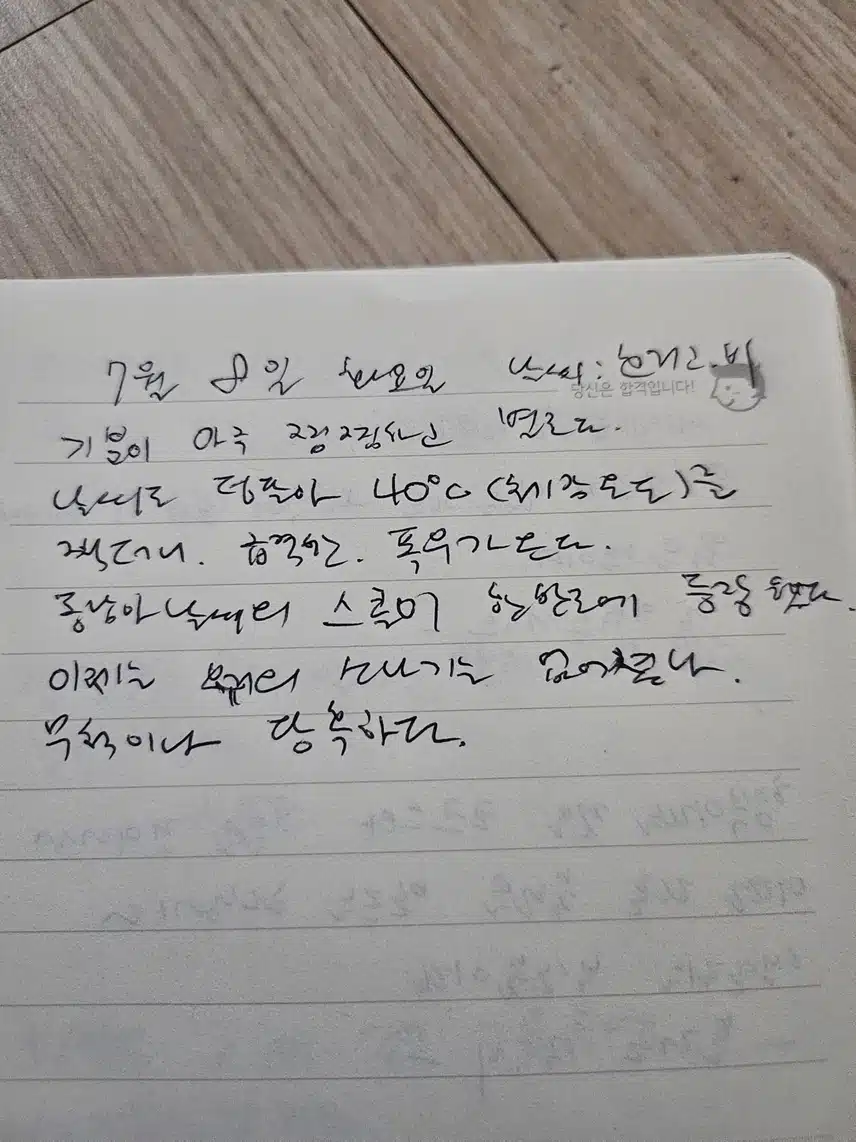 7월 8일 화요일 날씨: 흐리고 비
당신은 합격입니다!
기분이 아주 찝찝하고 별로다.
날씨도 덩달아 40°C (체감온도)를
찍더니. 급격한. 폭우가 온다.
동남아 날씨의 스콜이 한반도에 등장했다.
이제는 의 소나기는 없어졌나.
무척이나 당혹하다.